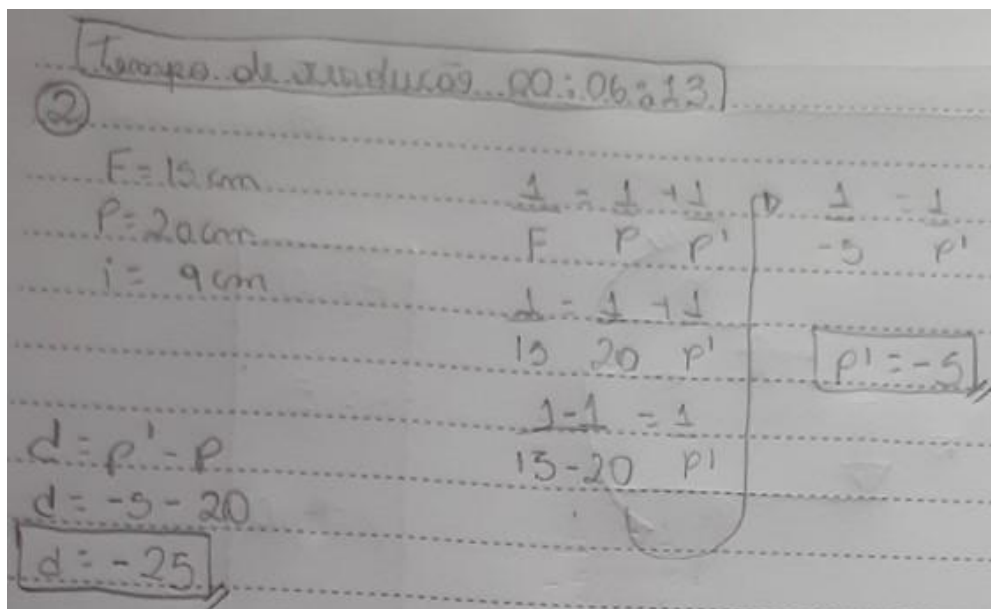 Tempo de resolução 00:06:13
②
F = 15 cm
P = 20 cm
i = 9 cm
1/F = 1/P + 1/P'
1/15 = 1/20 + 1/P'
1-1/15-20 = 1/P'
1/-5 = 1/P'
P' = -5
d = P' - P
d = -5 - 20
d = -25